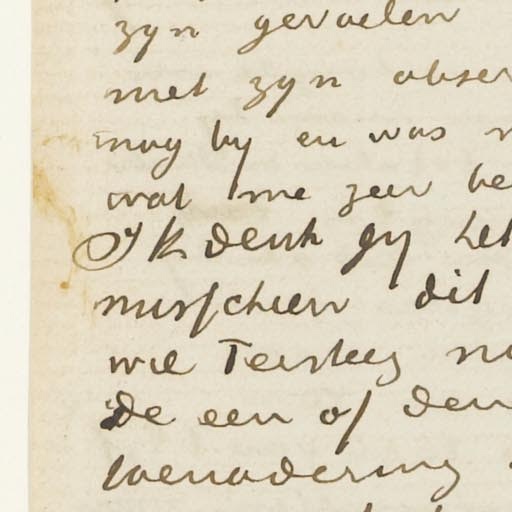 zyn gevoelen
met zyn obser
nog by en was
wat me zeer be
Ik denk gy het
misschien dit
wie Tersteeg no
de een of den
toenadering